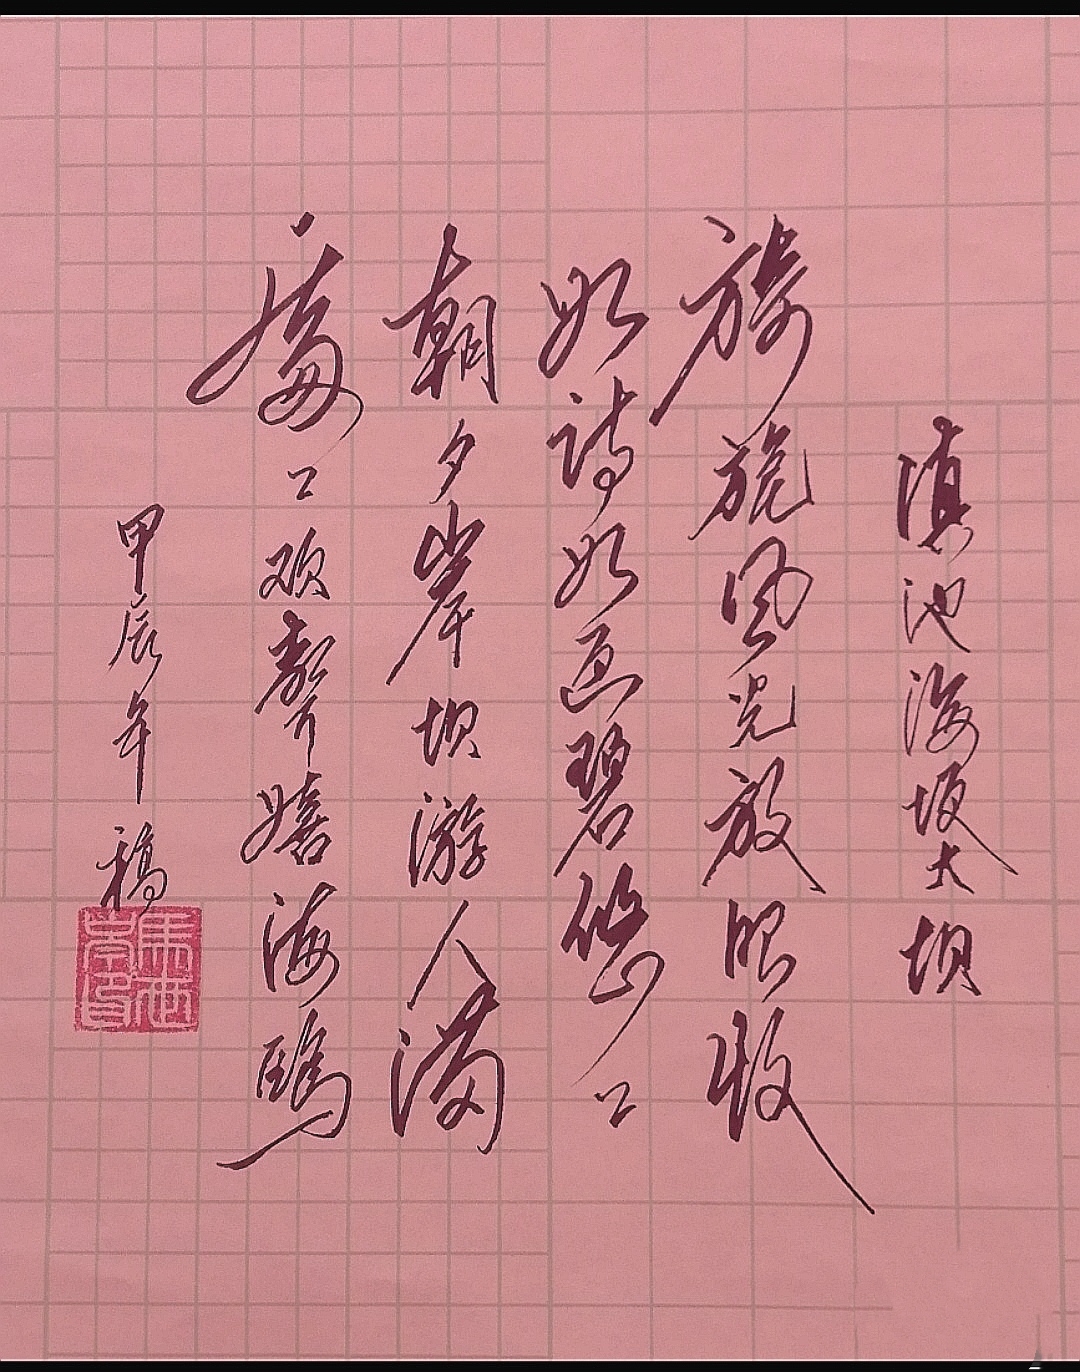 滇池海埂大坝
旖旎风光放眼收
如詩如画碧悠〻
朝夕岸坝游人满
處〻欢聲嬉海鸥
甲辰年稿